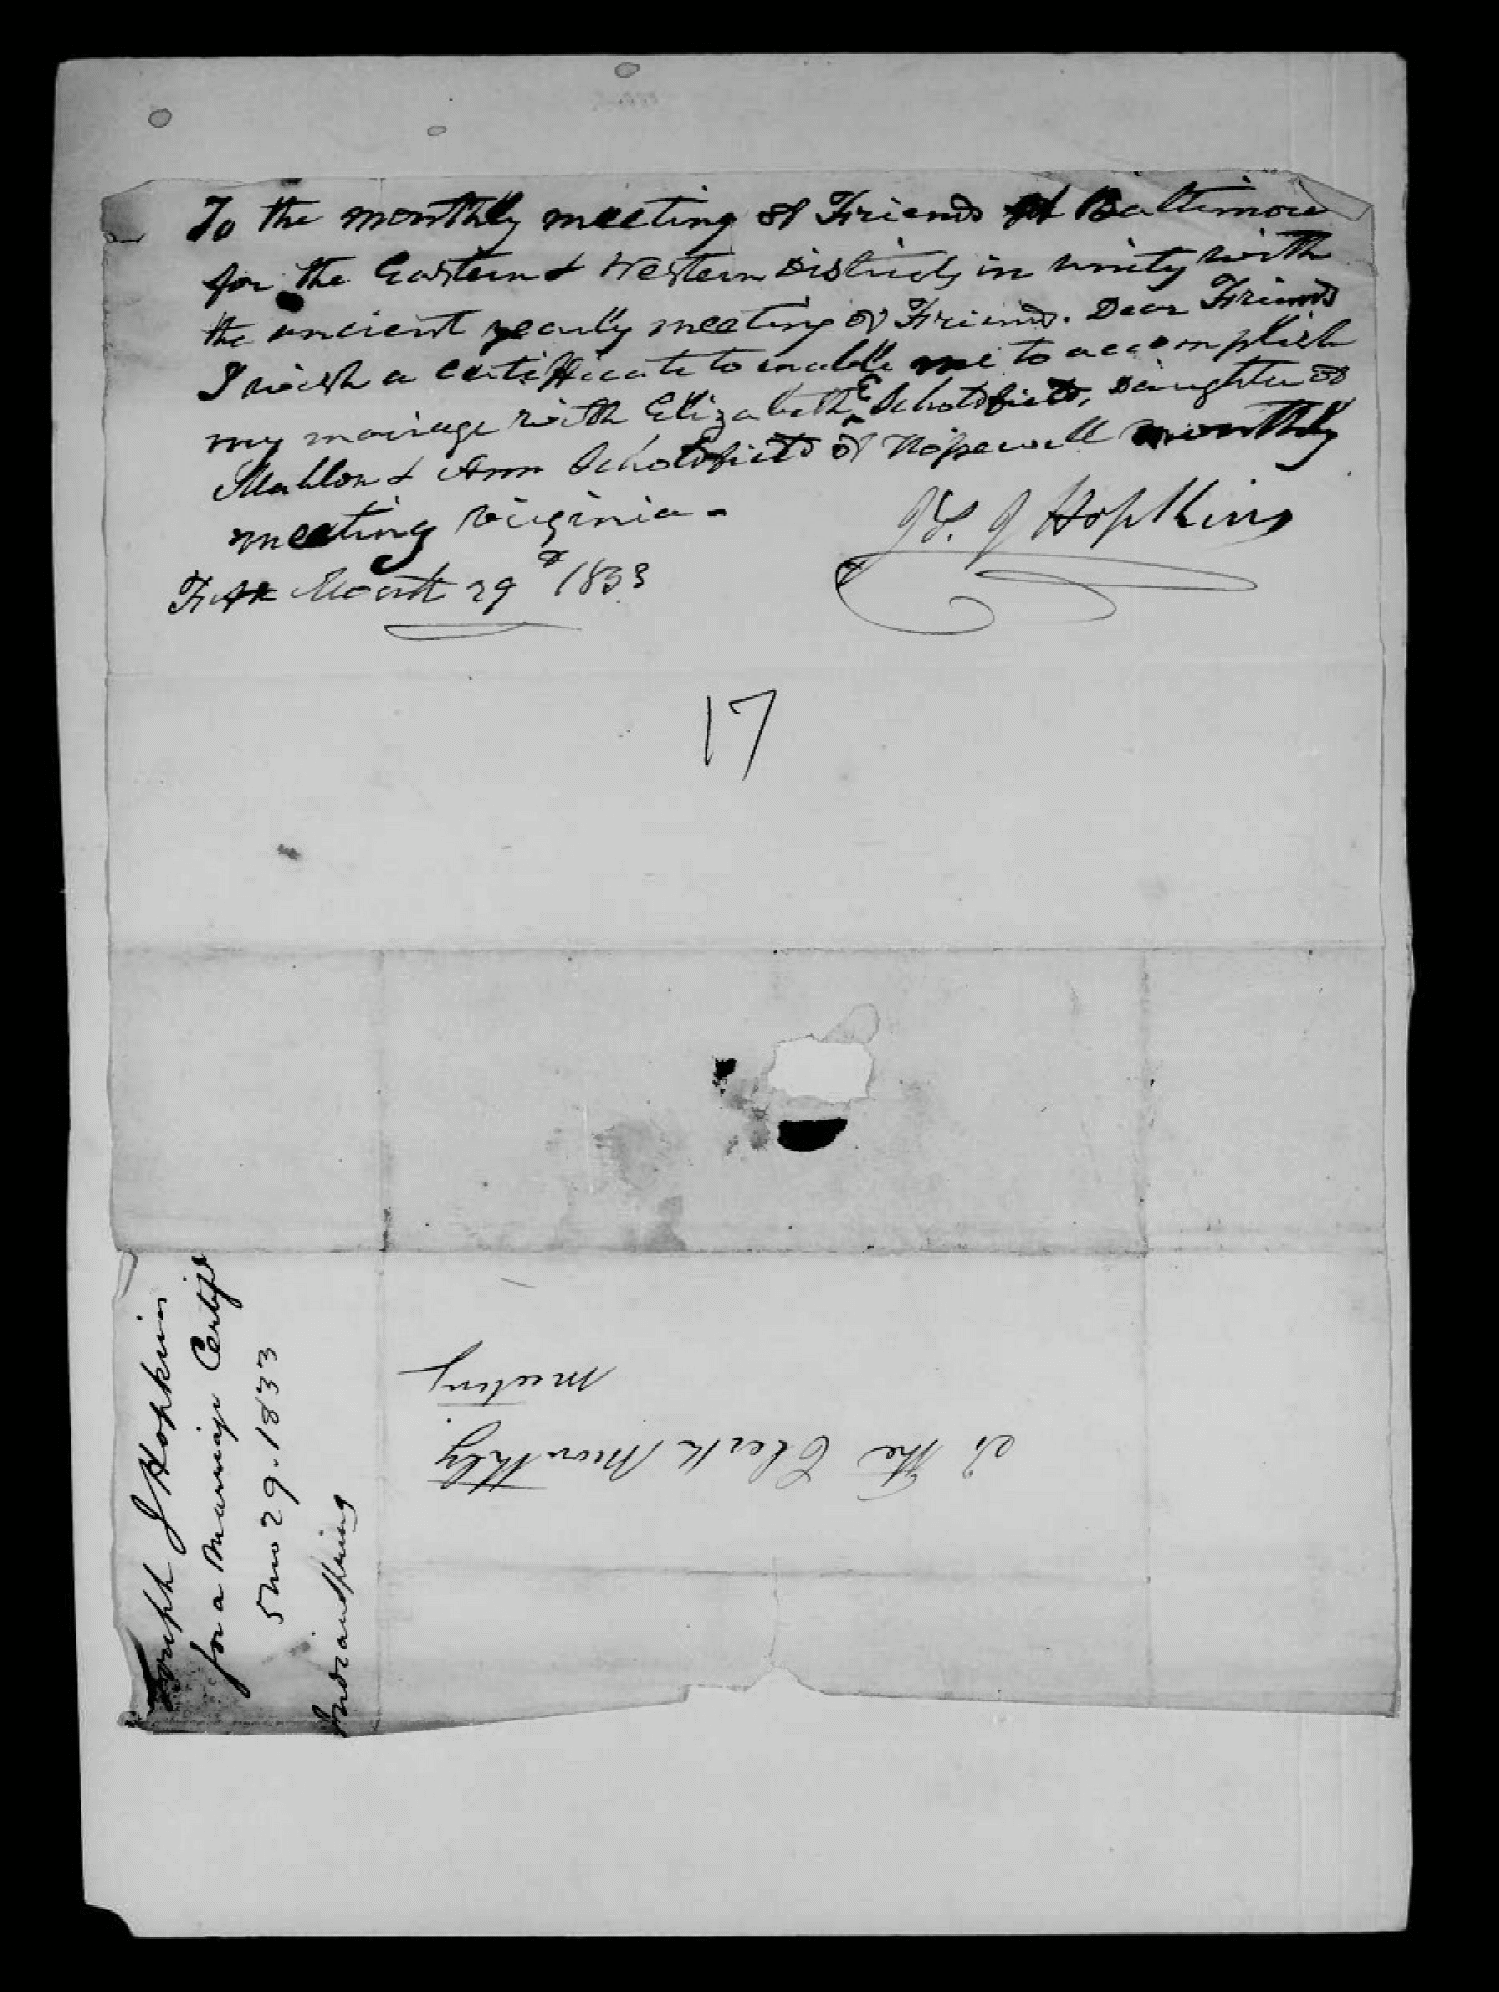 To the monthly meeting of Friends at Baltimore
for the Eastern & Western Districts, in unity with
the ancient yearly meeting of Friends. Dear Friends
I wish a certifficate to enable me to accomplish
my mariage with Elizabeth E Scholdfield, Daughter of
Mahlon & Ann Scholdfield of Hopewell monthly
meeting Virginia -
Js. J Hopkins
Fifth Month 29th 1833
17
To the Clerk Monthly
meeting
Joseph J Hopkins
for a Marriage Certife
5 mo 29. 1833
Indianspring